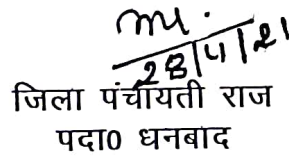 28/11/21
जिला पंचायती राज
पदा0 धनबाद